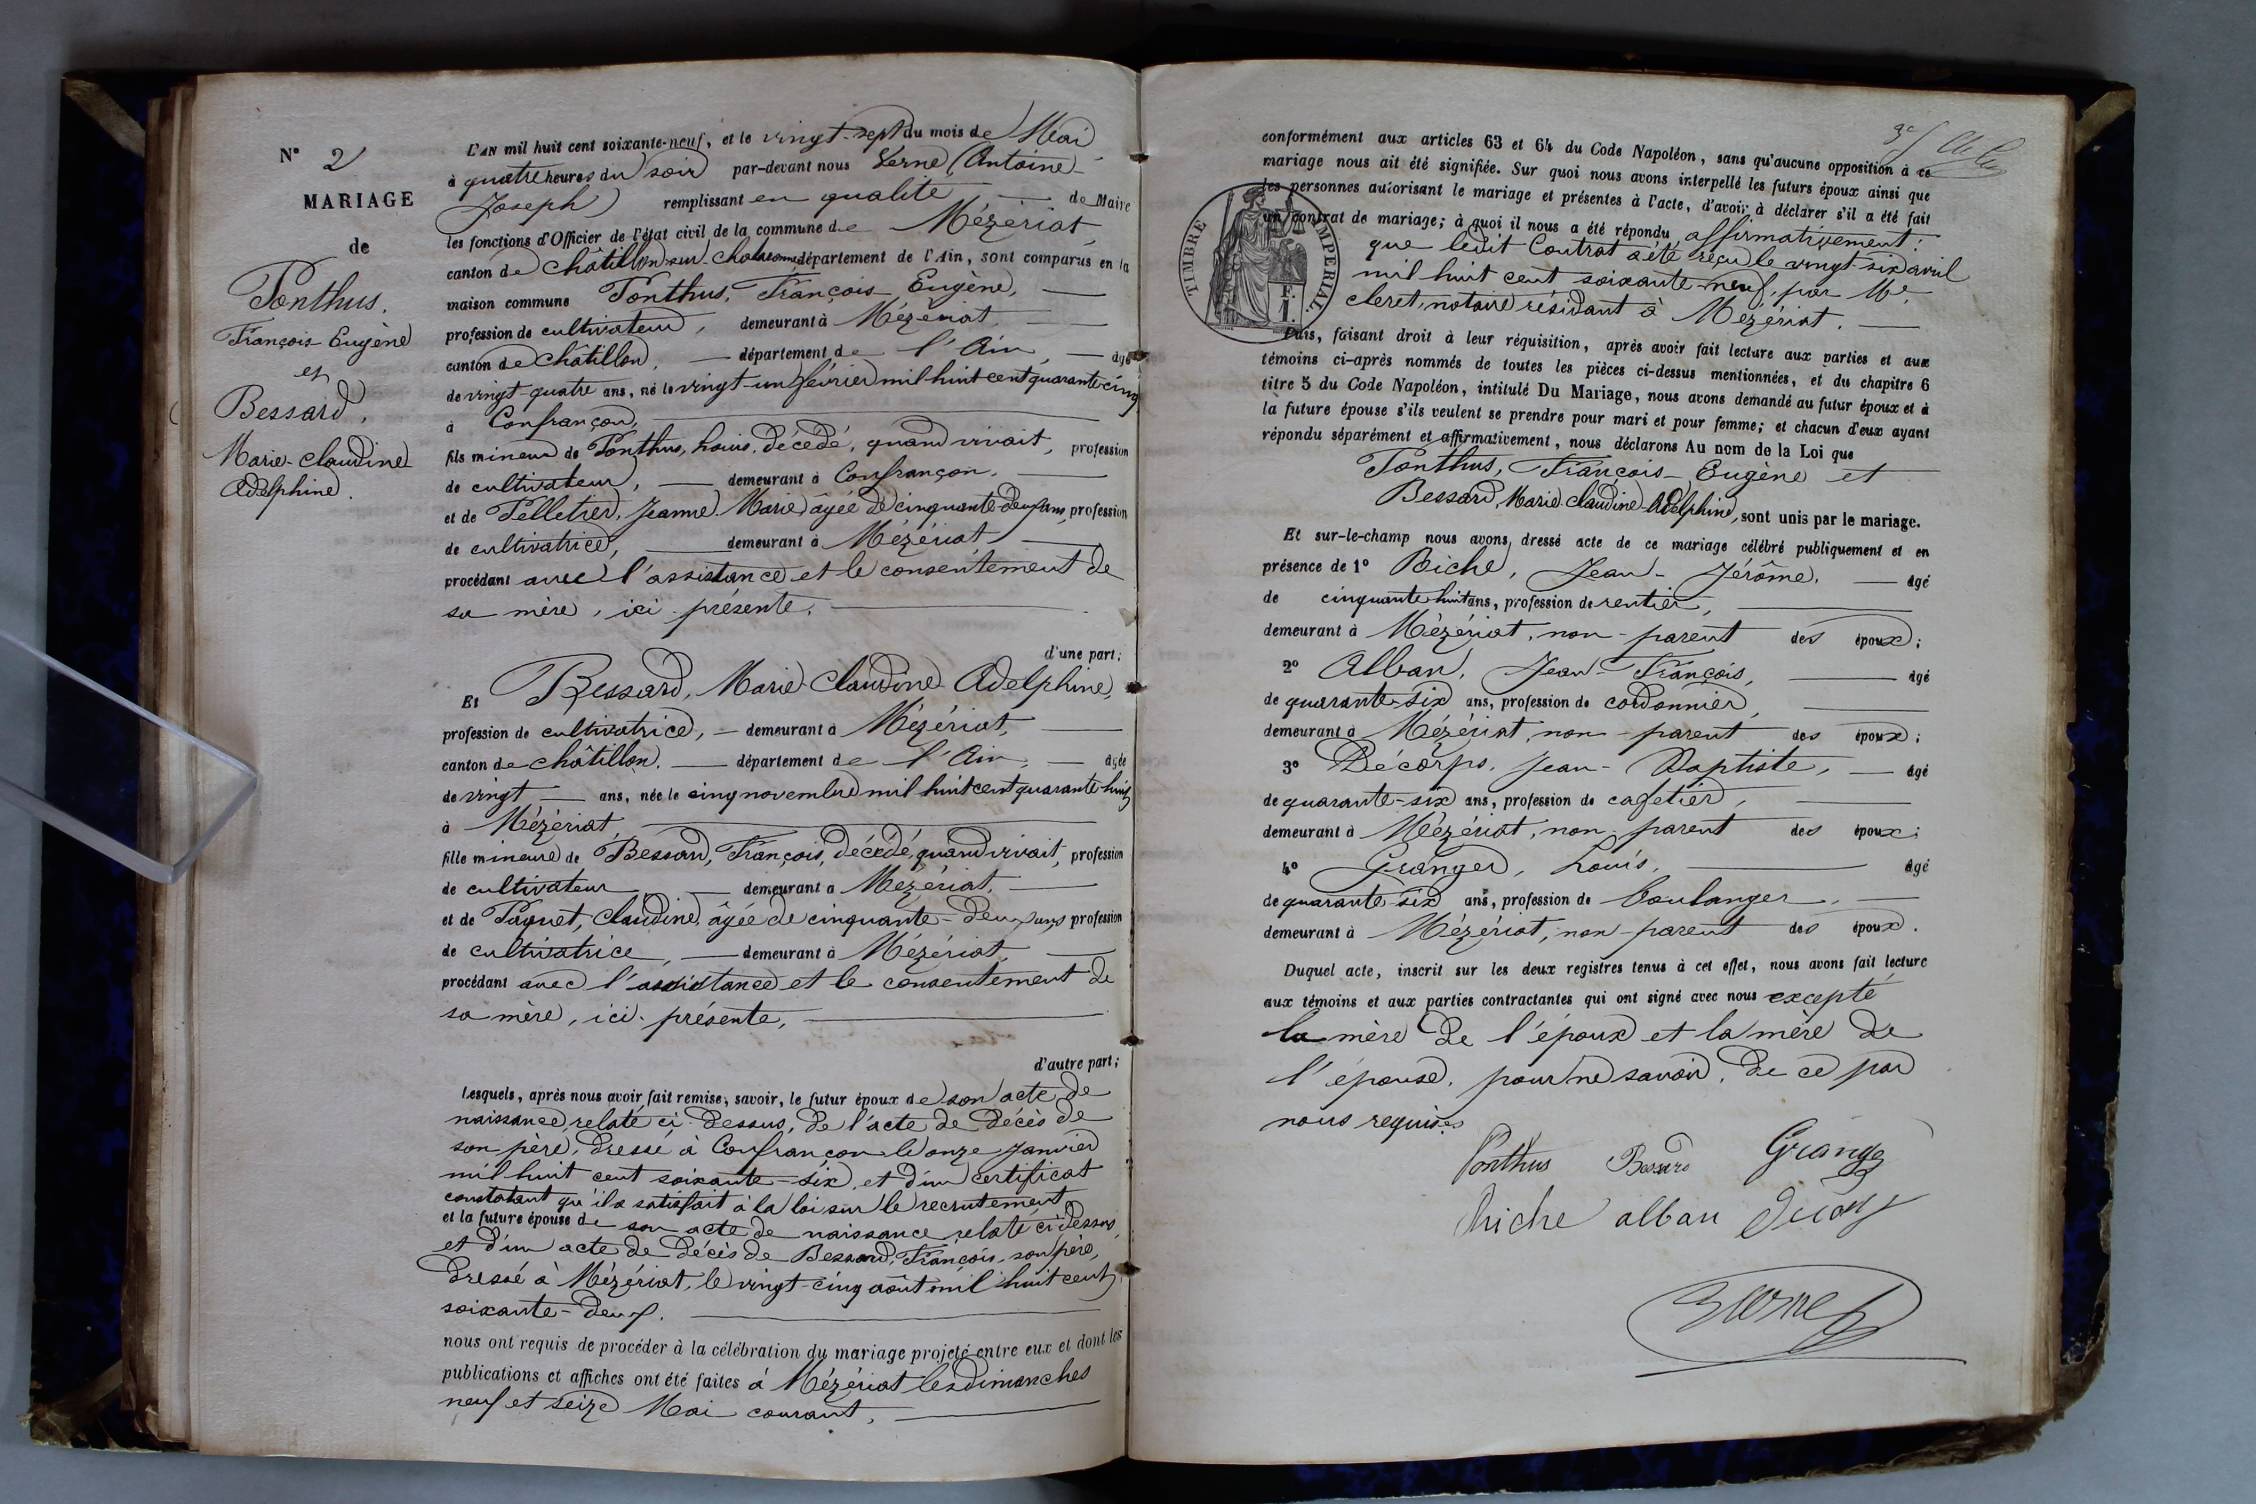 N° 2
MARIAGE
de
Ponthus,
François Eugène
et
Bessard,
Marie-Claudine
Adelphine.
L'AN mil huit cent soixante-neuf, et le vingt-sept du mois de Mai
à quatre heures du soir par-devant nous Verne (Antoine-
Joseph) remplissant en qualité de Maire
les fonctions d'Officier de l'état civil de la commune de Mézériat,
canton de Châtillon-sur-Chalaronne département de l'Ain, sont comparus en la
maison commune Ponthus, François Eugène,
profession de cultivateur, demeurant à Mézériat,
canton de Châtillon, département de l'Ain, âgé
de vingt-quatre ans, né le vingt-un février mil huit cent quarante-cinq
à Confrançon,
fils mineur de Ponthus, Louis, décédé, quand vivait, profession
de cultivateur, demeurant à Confrançon,
et de Pelletier, Jeanne Marie âgée de cinquante-deux ans, profession
de cultivatrice, demeurant à Mézériat,
procédant avec l'assistance et le consentement de
sa mère, ici présente,
d'une part;
Et Bessard, Marie-Claudine Adelphine,
profession de cultivatrice, demeurant à Mézériat,
canton de Châtillon, département de l'Ain, âgée
de vingt ans, née le cinq novembre mil huit cent quarante-huit
à Mézériat,
fille mineure de Bessard, François, décédé, quand vivait, profession
de cultivateur demeurant à Mézériat,
et de Paquet, Claudine, âgée de cinquante-deux ans profession
de cultivatrice, demeurant à Mézériat,
procédant avec l'assistance et le consentement de
sa mère, ici présente,
d'autre part;
Lesquels, après nous avoir fait remise, savoir, le futur époux de son acte de
naissance relaté ci-dessus, de l'acte de décès de
son père, dressé à Confrançon le onze Janvier
mil huit cent soixante-six, et d'un certificat
constatant qu'il a satisfait à la loi sur le recrutement
et la future épouse de son acte de naissance relaté ci-dessus,
et d'un acte de décès de Bessard, François, son père,
dressé à Mézériat, le vingt-cinq août mil huit cent
soixante-deux.
nous ont requis de procéder à la célébration du mariage projeté entre eux et dont les
publications et affiches ont été faites à Mézériat les dimanches
neuf et seize Mai courant,
conformément aux articles 63 et 64 du Code Napoléon, sans qu'aucune opposition à ce
mariage nous ait été signifiée. Sur quoi nous avons interpellé les futurs époux ainsi que
les personnes autorisant le mariage et présentes à l'acte, d'avoir à déclarer s'il a été fait
un contrat de mariage; à quoi il nous a été répondu affirmativement:
que ledit Contrat a été reçu le vingt-six avril
mil huit cent soixante-neuf, par Me
Cleret, notaire résidant à Mézériat.
TIMBRE IMPERIAL.
1 F.
Puis, faisant droit à leur réquisition, après avoir fait lecture aux parties et aux
témoins ci-après nommés de toutes les pièces ci-dessus mentionnées, et du chapitre 6
titre 5 du Code Napoléon, intitulé Du Mariage, nous avons demandé au futur époux et à
la future épouse s'ils veulent se prendre pour mari et pour femme; et chacun d'eux ayant
répondu séparément et affirmativement, nous déclarons Au nom de la Loi que
Ponthus, François-Eugène et
Bessard, Marie-Claudine-Adelphine, sont unis par le mariage.
Et sur-le-champ nous avons dressé acte de ce mariage célébré publiquement et en
présence de 1° Biche, Jean-Jérôme, âgé
de cinquante-huit ans, profession de rentier,
demeurant à Mézériat, non-parent des époux;
2° Alban, Jean-François, âgé
de quarante-six ans, profession de cordonnier,
demeurant à Mézériat, non-parent des époux;
3° Décorps, Jean-Baptiste, âgé
de quarante-six ans, profession de cafetier,
demeurant à Mézériat, non-parent des époux;
4° Granger, Louis, âgé
de quarante-six ans, profession de boulanger,
demeurant à Mézériat, non-parent des époux.
Duquel acte, inscrit sur les deux registres tenus à cet effet, nous avons fait lecture
aux témoins et aux parties contractantes qui ont signé avec nous excepté
la mère de l'époux et la mère de
l'épouse, pour ne savoir, de ce par
nous requises
Ponthus Bessard Grange
Biche alban
Verne